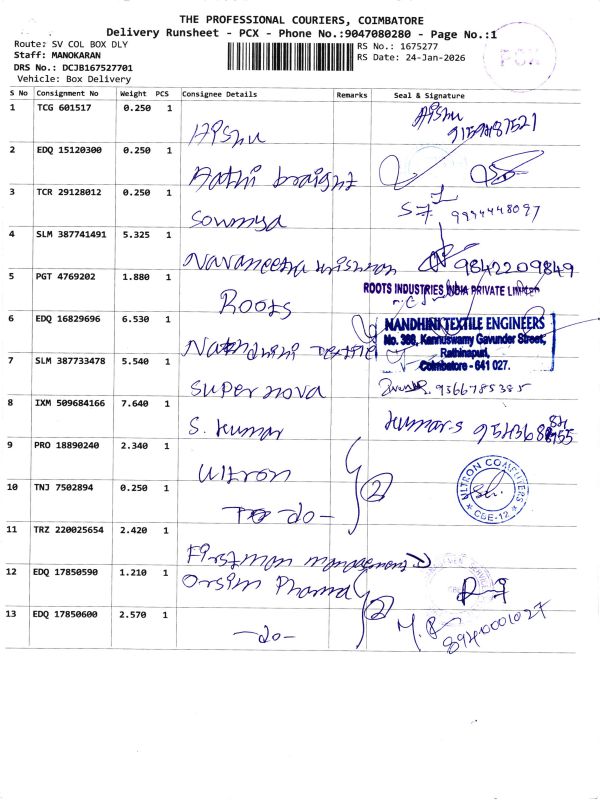 THE PROFESSIONAL COURIERS, COIMBATORE
Delivery Runsheet - PCX - Phone No.:9047080280 - Page No.:1
Route: SV COL BOX DLY
Staff: MANOKARAN
DRS No.: DCJB167527701
Vehicle: Box Delivery
RS No.: 1675277
RS Date: 24-Jan-2026
PCX
S No Consignment No Weight PCS Consignee Details Remarks Seal & Signature
1 TCG 601517 0.250 1 Aishu Aishu
2 EDQ 15120300 0.250 1 Aathi braight
3 TCR 29128012 0.250 1 Sowmya 9994448097
4 SLM 387741491 5.325 1 Navaneetha krishnan 9842209849
5 PGT 4769202 1.880 1 Roots ROOTS INDUSTRIES INDIA PRIVATE LIMITED
6 EDQ 16829696 6.530 1 Textile NANDHINI TEXTILE ENGINEERS
No. 368, Kannuswamy Gavunder Street,
Rathinapuri,
Coimbatore - 641 027.
7 SLM 387733478 5.540 1 Supernova 9366785385
8 IXM 509684166 7.640 1 S. Kumar Kumar.S
9 PRO 18890240 2.340 1 Ultron
10 TNJ 7502894 0.250 1 -do- 2 CBE-12
11 TRZ 220025654 2.420 1 Firstman management
12 EDQ 17850590 1.210 1 Pharma
13 EDQ 17850600 2.570 1 -do- 2